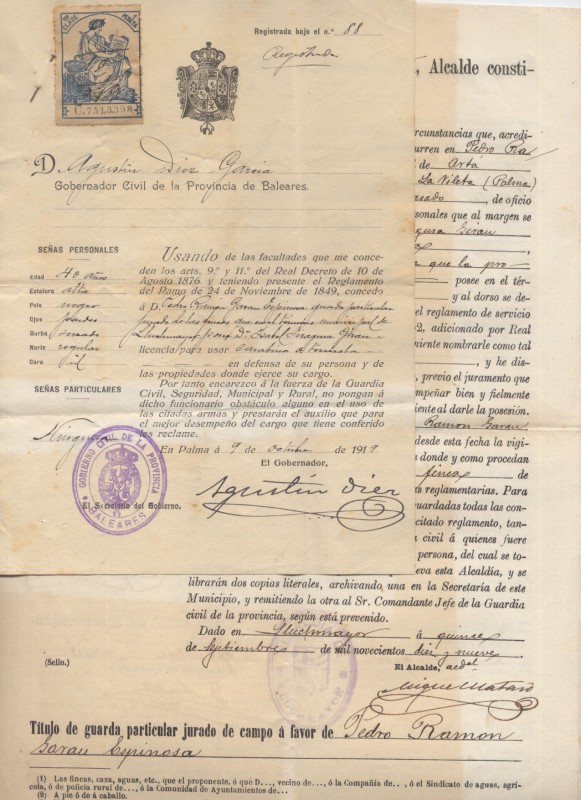 CLASE PESETA
C.754.3,358
Registrada bajo el n.º 88
Registrada
D. Agustín Diez García
Gobernador Civil de la Provincia de Baleares.
SEÑAS PERSONALES
Edad 40 años
Estatura alta
Pelo negro
Ojos pardos
Barba cerrada
Nariz regular
Cara
SEÑAS PARTICULARES
Ninguna
Usando de las facultades que me conce-
den los arts. 9.º y 11.º del Real Decreto de 10 de
Agosto 1876 y teniendo presente el Reglamento
del Ramo de 24 de Noviembre de 1849, concedo
á D. Pedro Ramón Garau Espinosa guarda particular
jurado de las fincas que en el término municipal de
Lluchmayor posee D.ª Isabel
licencia para usar
en defensa de su persona y de
las propiedades donde ejerce su cargo.
Por tanto encarezco á la fuerza de la Guardia
Civil, Seguridad, Municipal y Rural, no pongan á
dicho funcionario obstáculo alguno en el uso de
las citadas armas y prestarán el auxilio que para
el mejor desempeño del cargo que tiene conferido
les reclame.
En Palma á 9 de octubre de 1919
El Gobernador,
Agustín Diez
El Secretario del Gobierno,
GOBIERNO CIVIL DE LA PROVINCIA
BALEARES
, Alcalde consti-
rcunstancias que, acredi-
urren en Pedro Ra
de Artá
La Vileta (Palma)
, de oficio
rsonales que al margen se
que la pro
posee en el tér-
y al dorso se de-
el reglamento de servicio
2, adicionado por Real
niente nombrarle como tal
, y he dis-
, previo el juramento que
mpeñar bien y fielmente
iente al darle la posesión.
Ramon Garau
desde esta fecha la vigi-
s donde y como procedan
fincas de
s reglamentarias. Para
uardadas todas las con-
citado reglamento, tan-
civil á quienes fuere
persona, del cual se to-
eva esta Alcaldía, y se
librarán dos copias literales, archivando una en la Secretaria de este
Municipio, y remitiendo la otra al Sr. Comandante Jefe de la Guardia
civil de la provincia, según está prevenido.
Dado en Lluchmayor á quince
de Septiembre de mil novecientos diez y nueve
(Sello.)
El Alcalde, acctal
Miguel Mataró
Título de guarda particular jurado de campo á favor de Pedro Ramon
Garau Espinosa
(1) Las fincas, caza, aguas, etc., que el proponente, ó que D..., vecino de..., ó la Compañía de..., ó el Sindicato de aguas, agrí-
cola, ó de policía rural de..., ó la Comunidad de Ayuntamientos de...
(2) A pie ó de á caballo.